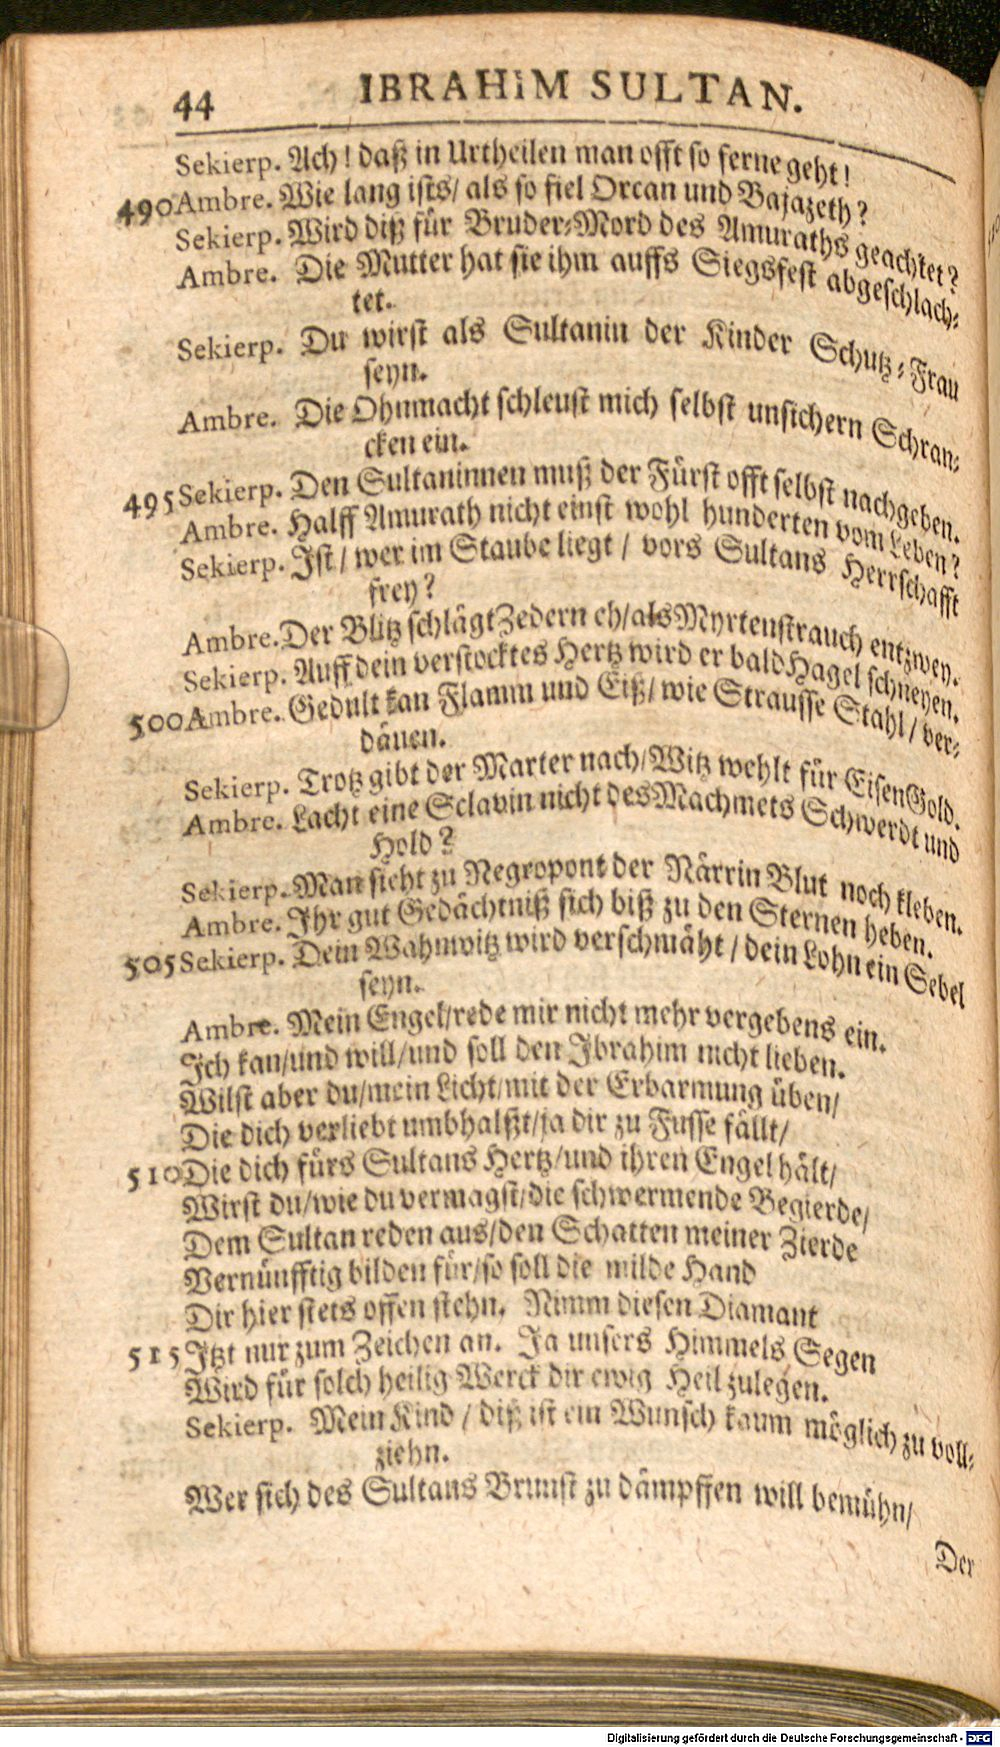 44 IBRAHiM SULTAN.
Sekierp. Ach! daß in Urtheilen man offt so ferne geht!
490 Ambre. Wie lang ists/ als so fiel Orcan und Bajazeth?
Sekierp. Wird diß für Bruder-Mord des Amuraths geachtet?
Ambre. Die Mutter hat sie ihm auffs Siegsfest abgeschlach-
tet.
Sekierp. Du wirst als Sultanin der Kinder Schutz-Frau
seyn.
Ambre. Die Ohnmacht schleust mich selbst unsichern Schran-
cken ein.
495 Sekierp. Den Sultaninnen muß der Fürst offt selbst nachgeben.
Ambre. Halff Amurath nicht einst wohl hunderten vom Leben?
Sekierp. Ist/ wer im Staube liegt/ vors Sultans Herrschafft
frey?
Ambre. Der Blitz schlägt Zedern eh/ als Myrtenstrauch entzwey.
Sekierp. Auff dein verstocktes Hertz wird er bald Hagel schneyen.
500 Ambre. Gedult kan Flamm und Eiß/ wie Strausse Stahl/ ver-
däuen.
Sekierp. Trotz gibt der Marter nach/ Witz wehlt für Eisen Gold.
Ambre. Lacht eine Sclavin nicht des Machmets Schwerdt und
Hold?
Sekierp. Man sieht zu Negropont der Närrin Blut noch kleben.
Ambre. Ihr gut Gedächtniß sich biß zu den Sternen heben.
505 Sekierp. Dein Wahnwitz wird verschmäht/ dein Lohn ein Sebel
seyn.
Ambre. Mein Engel/ rede mir nicht mehr vergebens ein.
Ich kan/ und will/ und soll den Ibrahim nicht lieben.
Wilst aber du/ mein Licht/ mit der Erbarmung üben/
Die dich verliebt umbhalßt/ ja dir zu Fusse fällt/
510 Die dich fürs Sultans Hertz/ und ihren Engel hält/
Wirst du/ wie du vermagst/ die schwermende Begierde/
Dem Sultan reden aus/ den Schatten meiner Zierde
Vernünfftig bilden für/ so soll die milde Hand
Dir hier stets offen stehn. Nimm diesen Diamant
515 Itzt nur zum Zeichen an. Ja unsers Himmels Segen
Wird für solch heilig Werck dir ewig Heil zulegen.
Sekierp. Mein Kind/ diß ist ein Wunsch kaum möglich zu voll-
ziehn.
Wer sich des Sultans Brunst zu dämpffen will bemühn/
Der
Digitalisierung gefördert durch die Deutsche Forschungsgemeinschaft - DFG